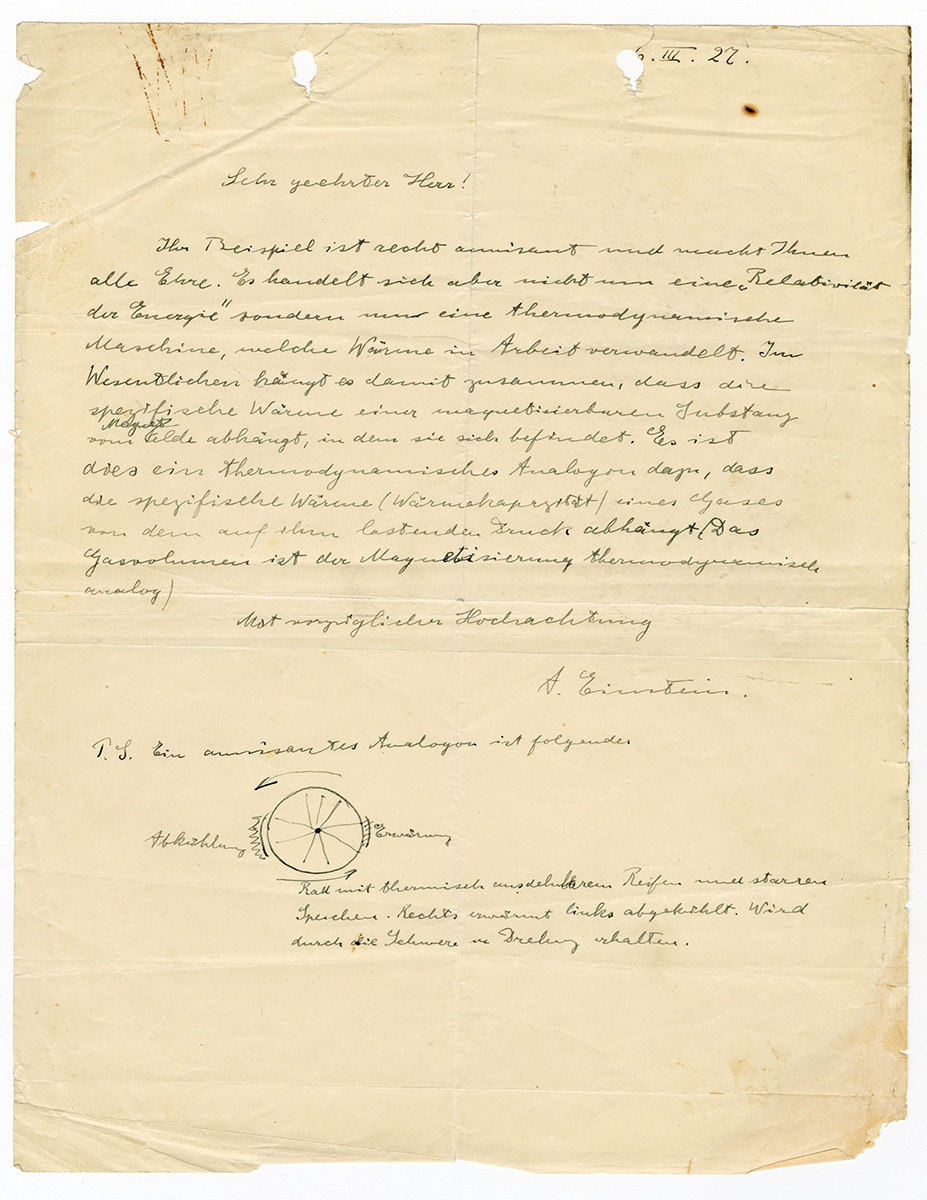 6. III. 27.
Sehr geehrter Herr!
Ihr Beispiel ist recht amüsant und macht Ihnen
alle Ehre. Es handelt sich aber nicht um eine „Relativität
der Energie" sondern um eine thermodynamische
Maschine, welche Wärme in Arbeit verwandelt. Im
Wesentlichen hängt es damit zusammen, dass die
spezifische Wärme einer magnetisierbaren Substanz
vom Felde abhängt, in dem sie sich befindet. Es ist
dies ein thermodynamisches Analogon dazu, dass
die spezifische Wärme (Wärmekapazität) eines Gases
von dem auf ihm lastenden Druck abhängt (Das
Gasvolumen ist der Magnetisierung thermodynamisch
analog)
Mit vorzüglicher Hochachtung
A. Einstein.
P. S. Ein amüsantes Analogon ist folgendes
Abkühlung
Erwärmung
Rad mit thermisch ausdehnbarem Reifen und starren
Speichen. Rechts erwärmt links abgekühlt. Wird
durch die Schwere in Drehung erhalten.